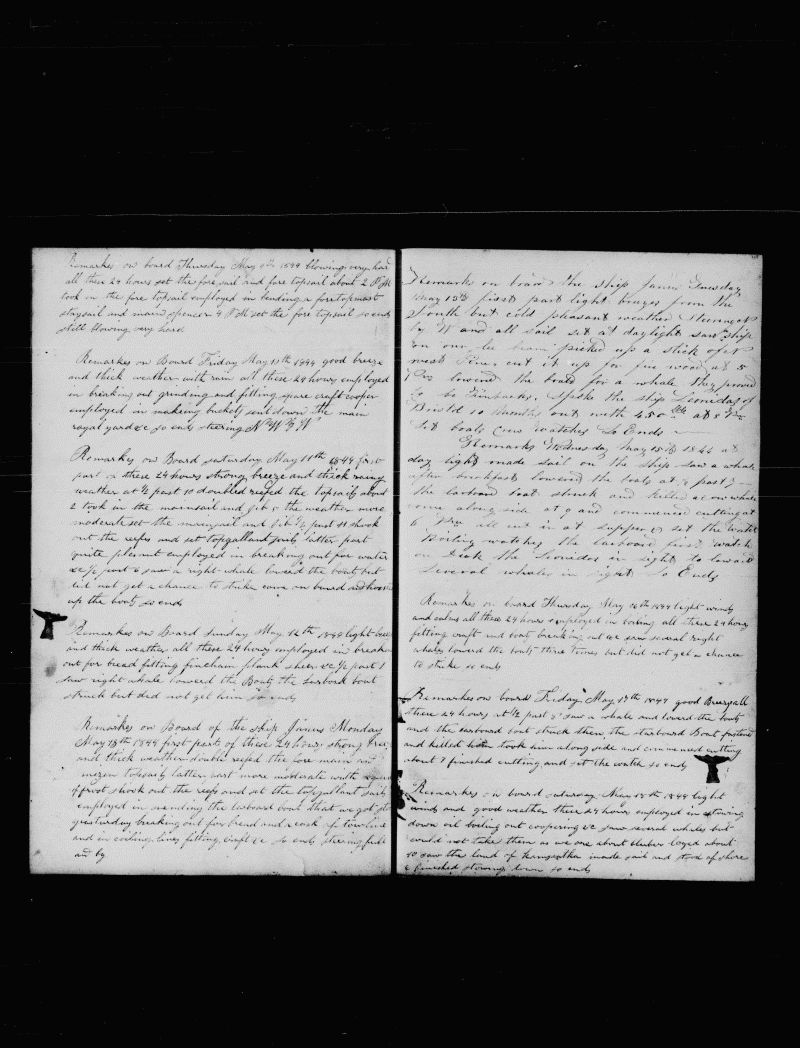 Remarks on board Thursday May 9th 1844 blowing very hard
all these 24 hours set the fore sail and fore topsail about 2 P M
took in the fore topsail employed in bending a foretopmast
staysail and main spencer 4 P M set the fore topsail so ends
still blowing very hard
Remarkes on Board Friday May 10th 1844 good breeze
and thick weather with rain all these 24 hours employed
in breaking out grinding and fitting spare craft cooper
employed in making buckets sent down the main
royal yard &c so ends steering N W B N
Remarkes on Board saturday May 11th 1844 first
part of these 24 hours strong breeze and thick rainy
weather at ½ past 10 doubled reefed the topsails about
2 took in the mainsail and jib & the weather more
moderate set the mainsail and jib ½ past 11 shook
out the reefs and set topgallandsails latter part
quite plesent employed in breaking out for water
&c ½ past 6 saw a right whale lowed the boats but
did not get a chance to strike came on board and hoisted
up the boats so ends
Remarkes on Board Sunday May 12th 1844 light breeze
and thick weather all these 24 hours employed in breaking
out for bread fitting plank sheer &c ½ past 1
saw right whale lowered the Boats the larbord boat
struck but did not get him so ends
Remarkes on Board of the ship Janus Monday
May 13th 1844 first part of these 24 hours strong breeze
and thick weather double reefed the fore main and
mizen topsails latter part more moderate with
shook out the reefs and set the topgallant sails
employed in mending the larboard boat that we got
yesturday breaking out for bread and a cask of towline
and in coiling lines fitting craft &c so ends steering full
and by
Remarks on board the ship Janus Tuesday
May 14th first part light breezes from the
South but cold pleasant weather Steering N
by W and all sail set at daylight saw a ship
on our lee beam picked up a stick of N
west Pine cut it up for fire wood at 5
P M lowered the boats for a whale they proved
to be Finbacks. Spoke the ship Leonidas of
Bristol 10 Months out with 450 bbls at 8 P M
Set boats crew watches So Ends
Remarks Wednesday May 15th 1844 at
day light made sail on the ship saw a whale
after breakfast lowered the boats at ½ past 7
the larboard boat struck and killed a cow whale
came along side at 9 and commenced cutting at
6 P M all cut in at Supper & set the Water
Boiling watches the larboard first watch
on Deck the Leonidas in sight to leward
Several whales in sight So Ends
Remarkes on board Thursday May 16th 1844 light winds
and calms all these 24 hours employed in boiling all these 24 hours
fitting craft and boat breaking out &c saw several right
whales lowered the boats three times but did not get a chance
to strike so ends
Remarkes on board Friday May 17th 1844 good Breeze all
these 24 hours at ½ past 2 saw a whale and lowerd the boats
and the larboard boat struck then the starboard Boat fastend
and killed took him along side and commenced cutting
about 8 finished cutting and set the watch so ends
Remarkes on board saturday May 18th 1844 light
winds and good weather these 24 hours employed in stowing
down oil boiling out coopering &c saw several whales but
could not take them as we are about bluber loged about
10 saw the land of made sail and stood of shore
& finished stowing down so ends